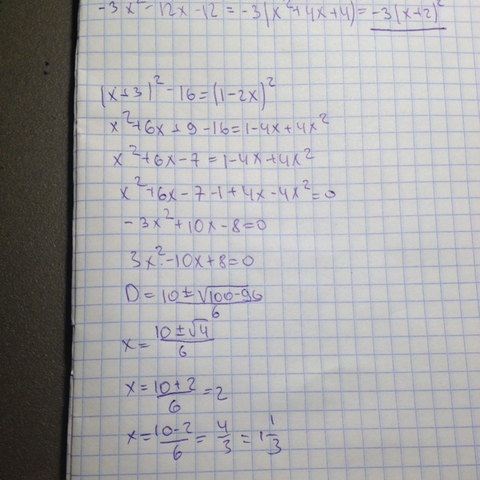 -3x²-12x-12=-3(x²+4x+4)=-3(x+2)²
(x+3)²-16=(1-2x)²
x²+6x+9-16=1-4x+4x²
x²+6x-7=1-4x+4x²
x²+6x-7-1+4x-4x²=0
-3x²+10x-8=0
3x²-10x+8=0
D=(10±√(100-96))/6
x=(10±√4)/6
x=(10+2)/6=2
x=(10-2)/6=4/3=1 1/3